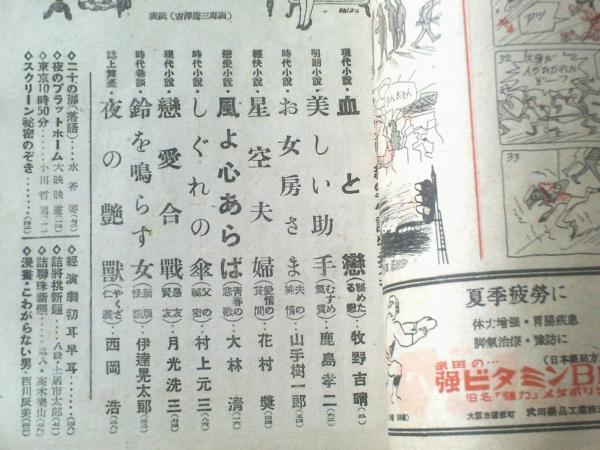 表紙(古澤慶三郎画)
現代小説・血と戀(秘めたる戀)・牧野吉晴
明朗小説・美しい助手(むすめ氣質)・鹿島孝二
時代小説・お女房さま(夫の純情)・山手樹一郎
輕快小説・星空夫婦(愛情の質問)・花村奬
戀愛小説・風よ心あらば(青春の悲歌)・大林清
時代小説・しぐれの傘(父の秘密)・村上元三
現代小説・戀愛合戰(愚友賢友)・月光洗三
時代巷談・鈴を鳴らす女(新版怪談)・伊達晃太郎
誌上舞臺・夜の艶獸(やくざ仁義)・西岡浩
◇二十の扉(落語)・・・水谷
◇夜のプラットホーム・大映映畫
◇東京10時50分・・・・小川哲男
◇スクリーン祕密のぞき
◇輕演劇初耳早耳
◇詰將棋新題・八段・土居市太郎
◇詰聯珠新題・・高木樂山
◇漫畫・わからない男・西川辰美
32
33
夏季疲勞に
体力増强・胃腸疾患
脚氣治療・豫防に
武田の…
强ビタミンB
旧名「强力」メタボリン
大阪市道修町 武田藥品工業株